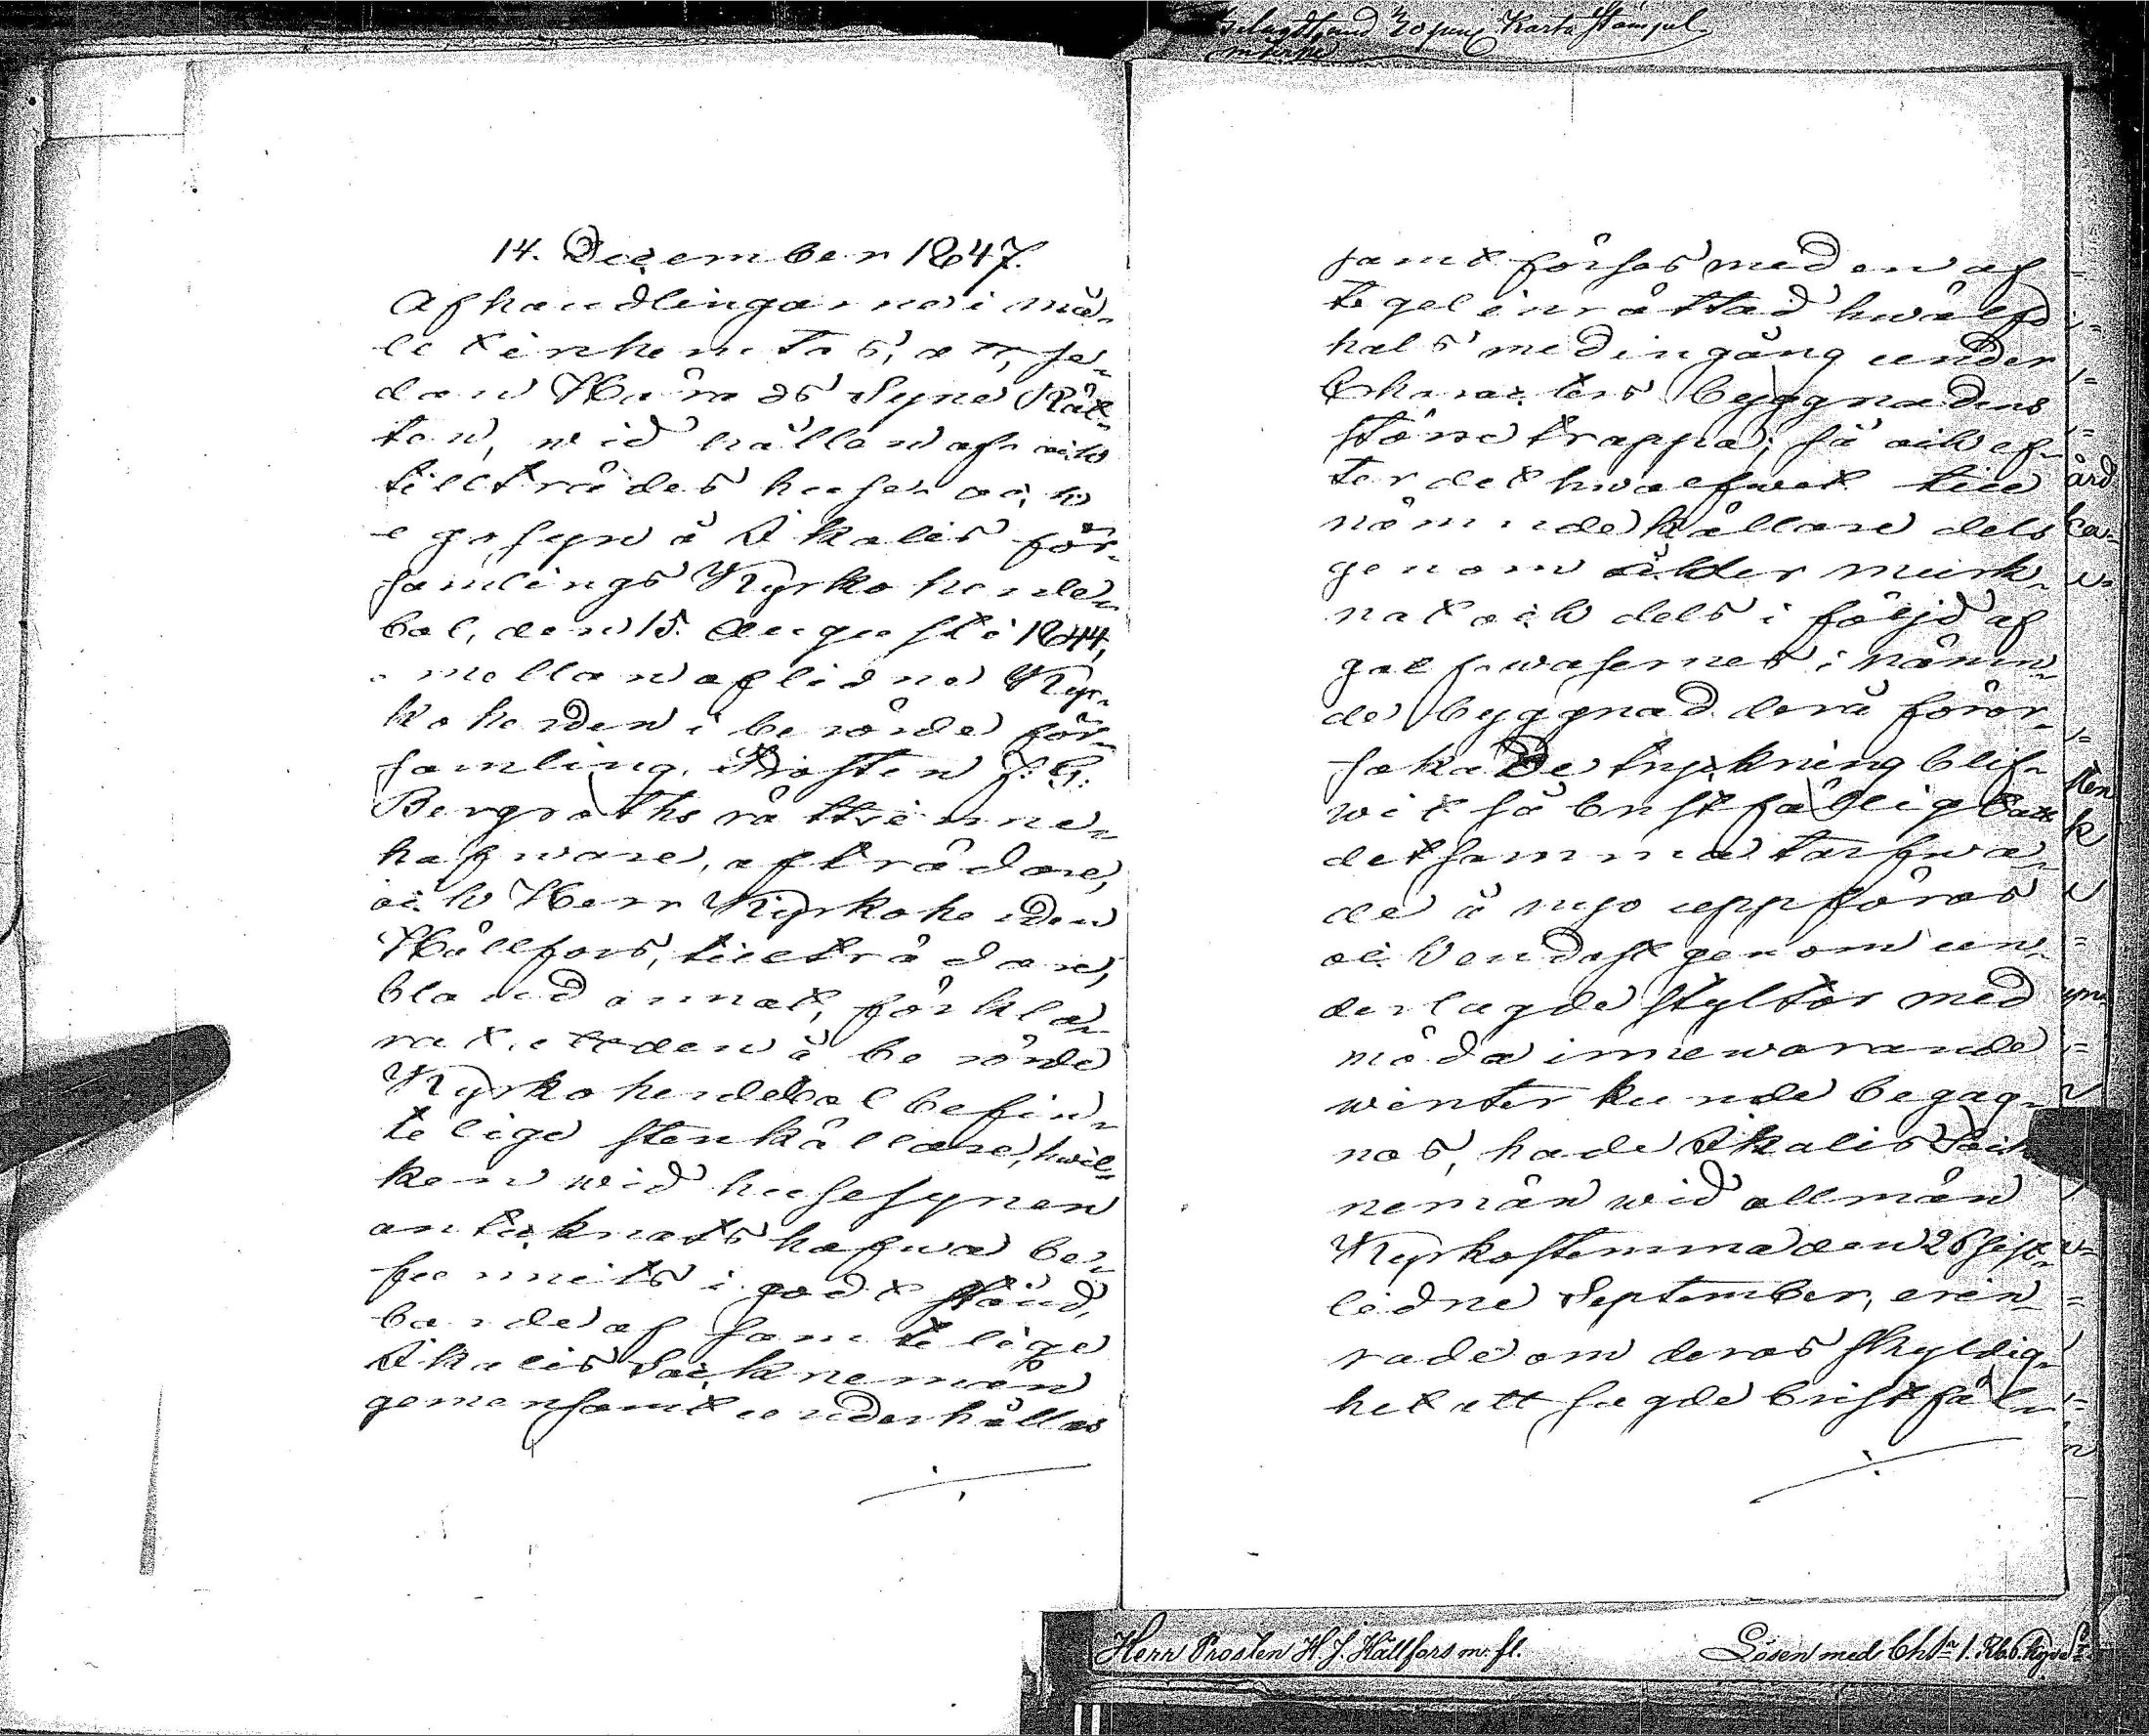 14. December 1847.
Afhandlingarne i må-
let inhemtas, att, se-
dan Härads Syne Rät-
ten, wid hållen af- och
tillträdes huse och
egosyn å Ikalis för-
samlings Kyrkoherde-
bol, den 15. Augusti 1844,
emellan aflidne Kyr-
koherden i berörde för-
samling, Prosten J: G:
Bergroths rättsinne-
hafware, afträdare,
och Herr Kyrkoherden
Hällfors, tillträdare,
bland annat, förkla-
rat, att den å berörde
Kyrkoherdebol befin-
telige stenkällare, hwil-
ken wid husesynen
antecknats hafwa be-
funnits i godt stånd,
borde af samtelige
Ikalis Socknemän
gemensamt underhållas
samt förses med en af
tegel inrättad hwälfd
hals med ingång under
Charakters byggnadens
stora trappa; så och ef-
ter det hwalfwet till
nämnde källare dels
genom ålder murk-
nat och dels i följd af
golfwasernes i nämn-
de byggnad derå föror-
sakade tryckning blif-
wit så bristfällig att
detsamma tarfwa-
de å nyo uppföras
och endast genom un-
derlagde styltor med
möda innewarande
winter kunde begag-
nas, hade Ikalis Sock
nemän wid allmän
Kyrkostemma den 26 sist-
lidne September, erin-
rade om deras skyldig-
het att sagde bristfäl-
ård
ca-
sten
k
yn-
Herr Prosten H. J. Hällfors m. fl.
Lösen med Ch Sr 1. Rb. 6. kop. Sr